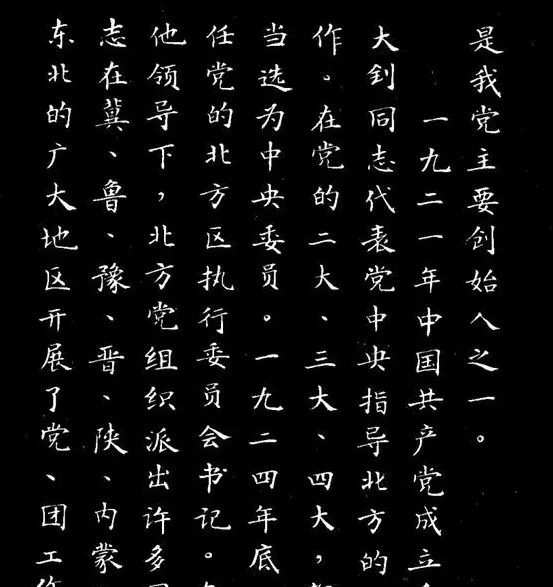 是我党主要创始人之一。
一九二一年中国共产党成立
大钊同志代表党中央指导北方的
作。在党的二大、三大、四大，
当选为中央委员。一九二四年底
任党的北方区执行委员会书记。
他领导下，北方党组织派出许多
志在冀、鲁、豫、晋、陕、内蒙
东北的广大地区开展了党、团工作